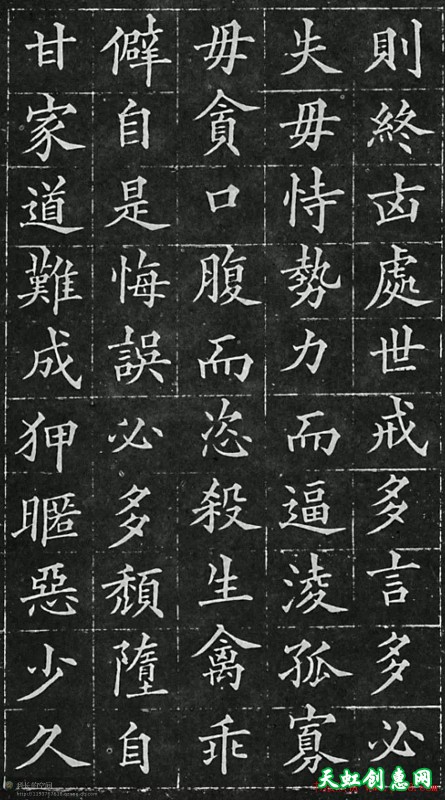 則終凶處世戒多言多必
失毋恃勢力而逼淩孤寡
毋貪口腹而恣殺生禽乖
僻自是悔誤必多頽墮自
甘家道難成狎暱惡少久
天虹创惠网